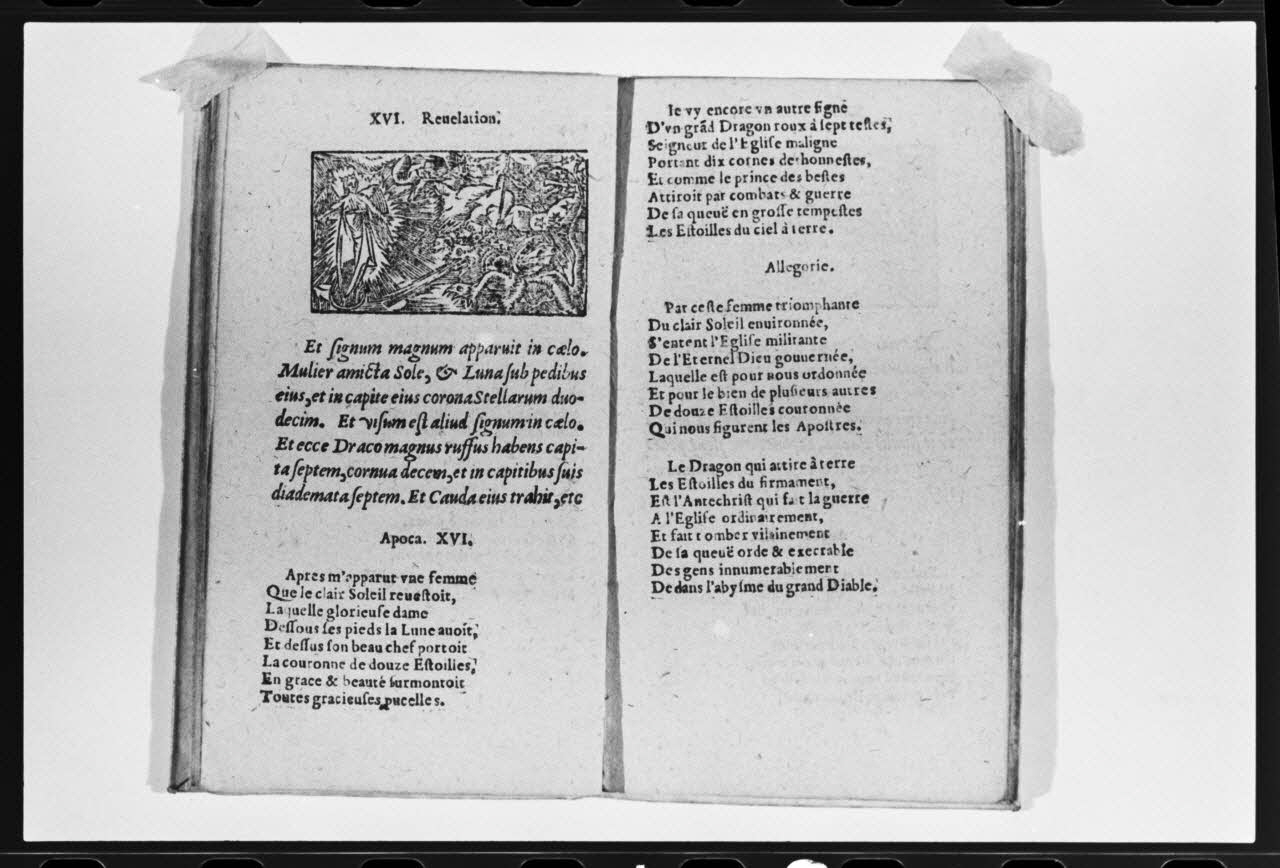 XVI. Reuelation.
Et ſignum magnum apparuit in cœlo.
Mulier amicta Sole, & Luna ſub pedibus
eius, et in capite eius corona Stellarum duo-
decim. Et viſum eſt aliud ſignum in cœlo.
Et ecce Draco magnus ruffus habens capi-
ta ſeptem, cornua decem, et in capitibus ſuis
diademata ſeptem. Et Cauda eius trahit, etc
Apoca. XVI.
Apres m'apparut vne femme
Que le clair Soleil reueſtoit,
Laquelle glorieuſe dame
Deſſous ſes pieds la Lune auoit,
Et deſſus ſon beau chef portoit
La couronne de douze Eſtoilles,
En grace & beauté ſurmontoit
Toutes gracieuſes pucelles.
Ie vy encore vn autre ſigne
D'vn grãd Dragon roux à ſept teſtes,
Seigneur de l'Egliſe maligne
Portant dix cornes deshonneſtes,
Et comme le prince des beſtes
Attiroit par combats & guerre
De ſa queuë en groſſe tempeſtes
Les Eſtoilles du ciel à terre.
Allegorie.
Par ceſte femme triomphante
Du clair Soleil enuironnée,
S'entent l'Egliſe militante
De l'Eternel Dieu gouuernée,
Laquelle eſt pour nous ordonnée
Et pour le bien de pluſieurs autres
De douze Eſtoilles couronnée
Qui nous figurent les Apoſtres.
Le Dragon qui attire à terre
Les Eſtoilles du firmament,
Eſt l'Antechriſt qui fait la guerre
A l'Egliſe ordinairement,
Et fait tomber vilainement
De ſa queuë orde & execrable
Des gens innumerablement
Dedans l'abyſme du grand Diable.